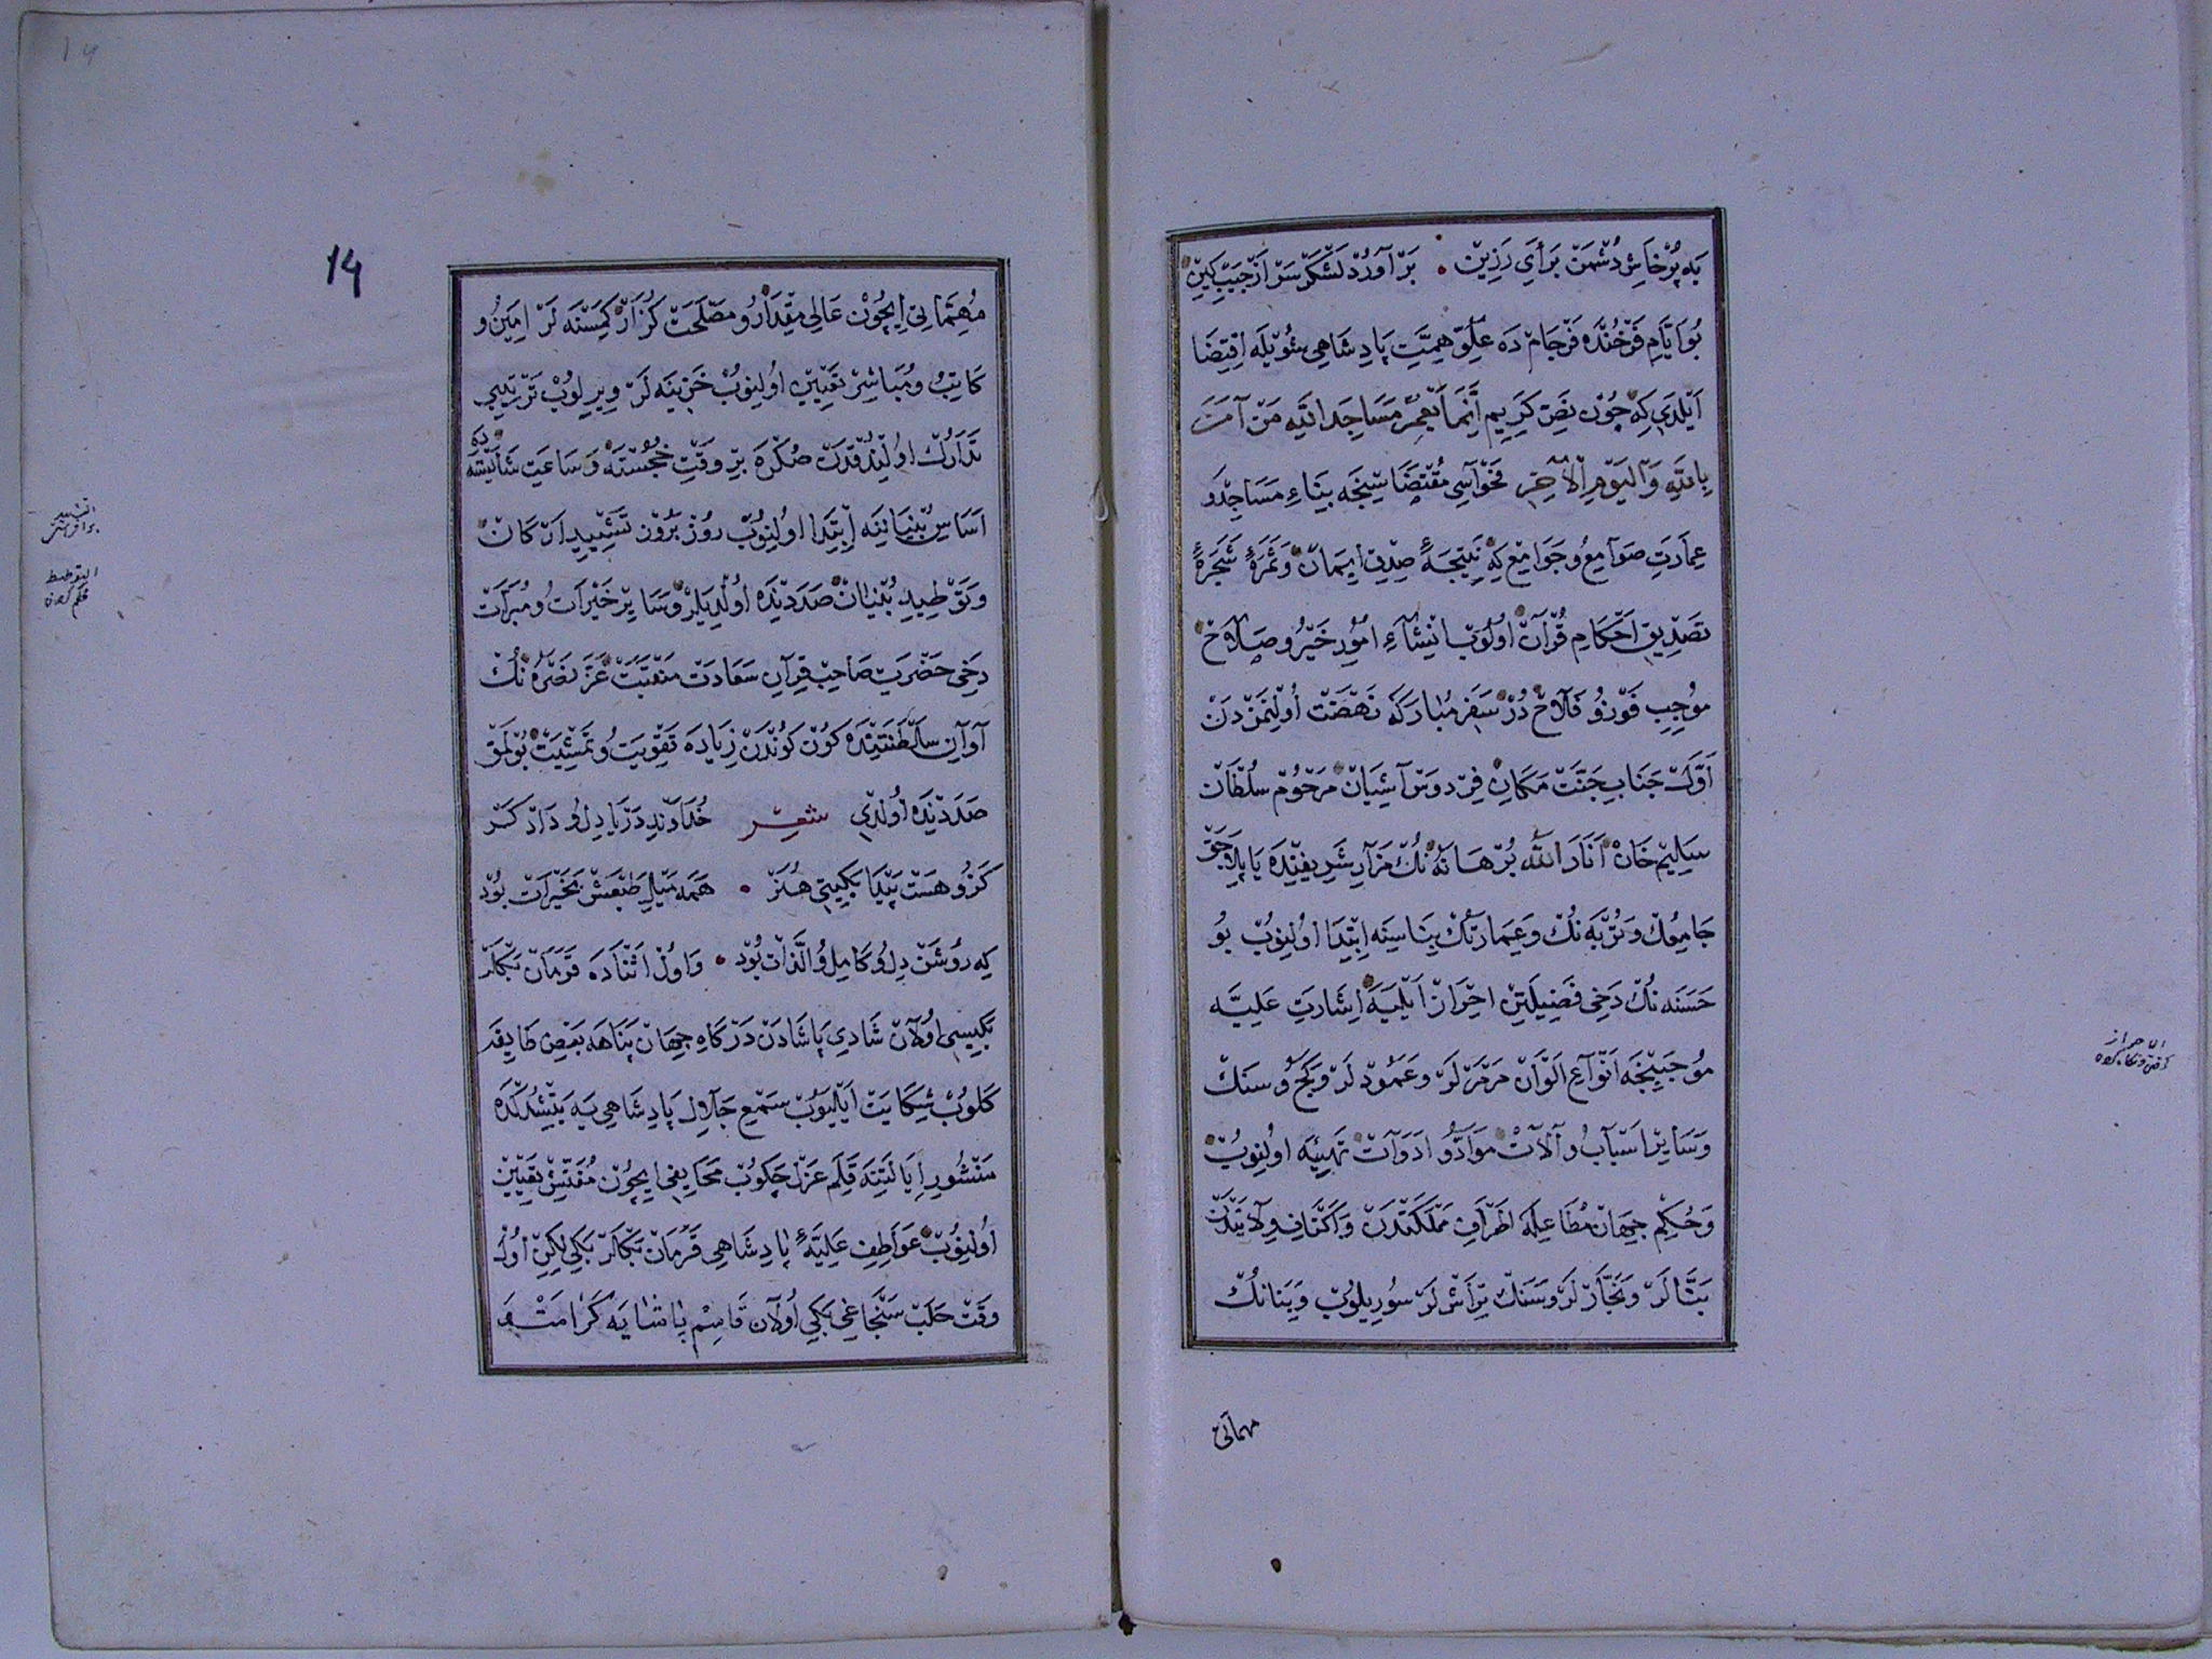 به پرخاش دشمن برأی رزین • برآورد لشکر سر از جیب کین
بو ایام فرخنده فرجام ده علو همت پادشاهی شویله اقتضا
ایلدی که چون نص کریم انما یعمر مساجد الله من آمن
بالله والیوم الآخر فحواسی مقتضاسنجه بناء مساجد و
عمارت صوامع و جوامع که نتیجهٔ صدق ایمان و ثمرهٔ شجرهٔ
تصدیق احکام قرآن اولوب انشاء امور خیر و صلاح
موجب فوز و فلاح در سفر مبارکه نهضت اولنمزدن
اول جناب جنت مکان فردوس آشیان مرحوم سلطان
سلیم خان انار الله برهانه نک مزار شریفنده یاپلاجق
جامعک و تربه نک و عمارتک بناسنه ابتدا اولنوب بو
حسنه نک دخی فضیلتین احراز ایلیه اشارت علیه
موجبنجه انواع الوان مرمرلر و عمودلر و کج و سنک
و سایر اسباب و آلات مواد و ادوات تهیئه اولنوب
و حکم جهان مطاعله اطراف مملکتدن و اکناف ولایتدن
بنالر و نجارلر و سنک تراشلر سوریلوب و بنانک
مهماتی
الاحراز
14
مهماتی ایچون عالی مقدار و مصلحت کزار کمسنه لر امین و
کاتب و مباشر تعیین اولنوب خزینه لر ویریلوب ترتیبی
تدارک اولندقدن صکره بر وقت خجسته و ساعت شایسته ده
اساس بنیاننه ابتدا اولنوب روز بروز تشیید ارکان
و توطید بنیان صددنده اولدیلر و سایر خیرات و مبرات
دخی حضرت صاحب قران سعادت منقبت عز نصره نک
آوان سلطنتنده کون کوندن زیاده تقویت و تمشیت بولمق
صددنده اولدی شعر خداوند دریا دل و دادکر
کزو هست پیدا بکیتی هنر • همه میل طبعش بخیرات بود
که روشن دل و کامل الذات بود • و اول اثناده قرمان بکلر
بکیسی اولان شادی پاشادن درکاه جهان پناهه بعض طایفه
کلوب شکایت ایلیوب سمع جلال پادشاهی یه یتشدکده
منشور ایالتنه قلم عزل چکوب محایفی ایچون مفتش تعیین
اولنوب عواطف علیهٔ پادشاهی قرمان بکلر بکی لکن اول
وقت حلب سنجاغی بکی اولان قاسم پاشایه کرامت
التشیید
برافراشتن
التوطید
محکم کردن